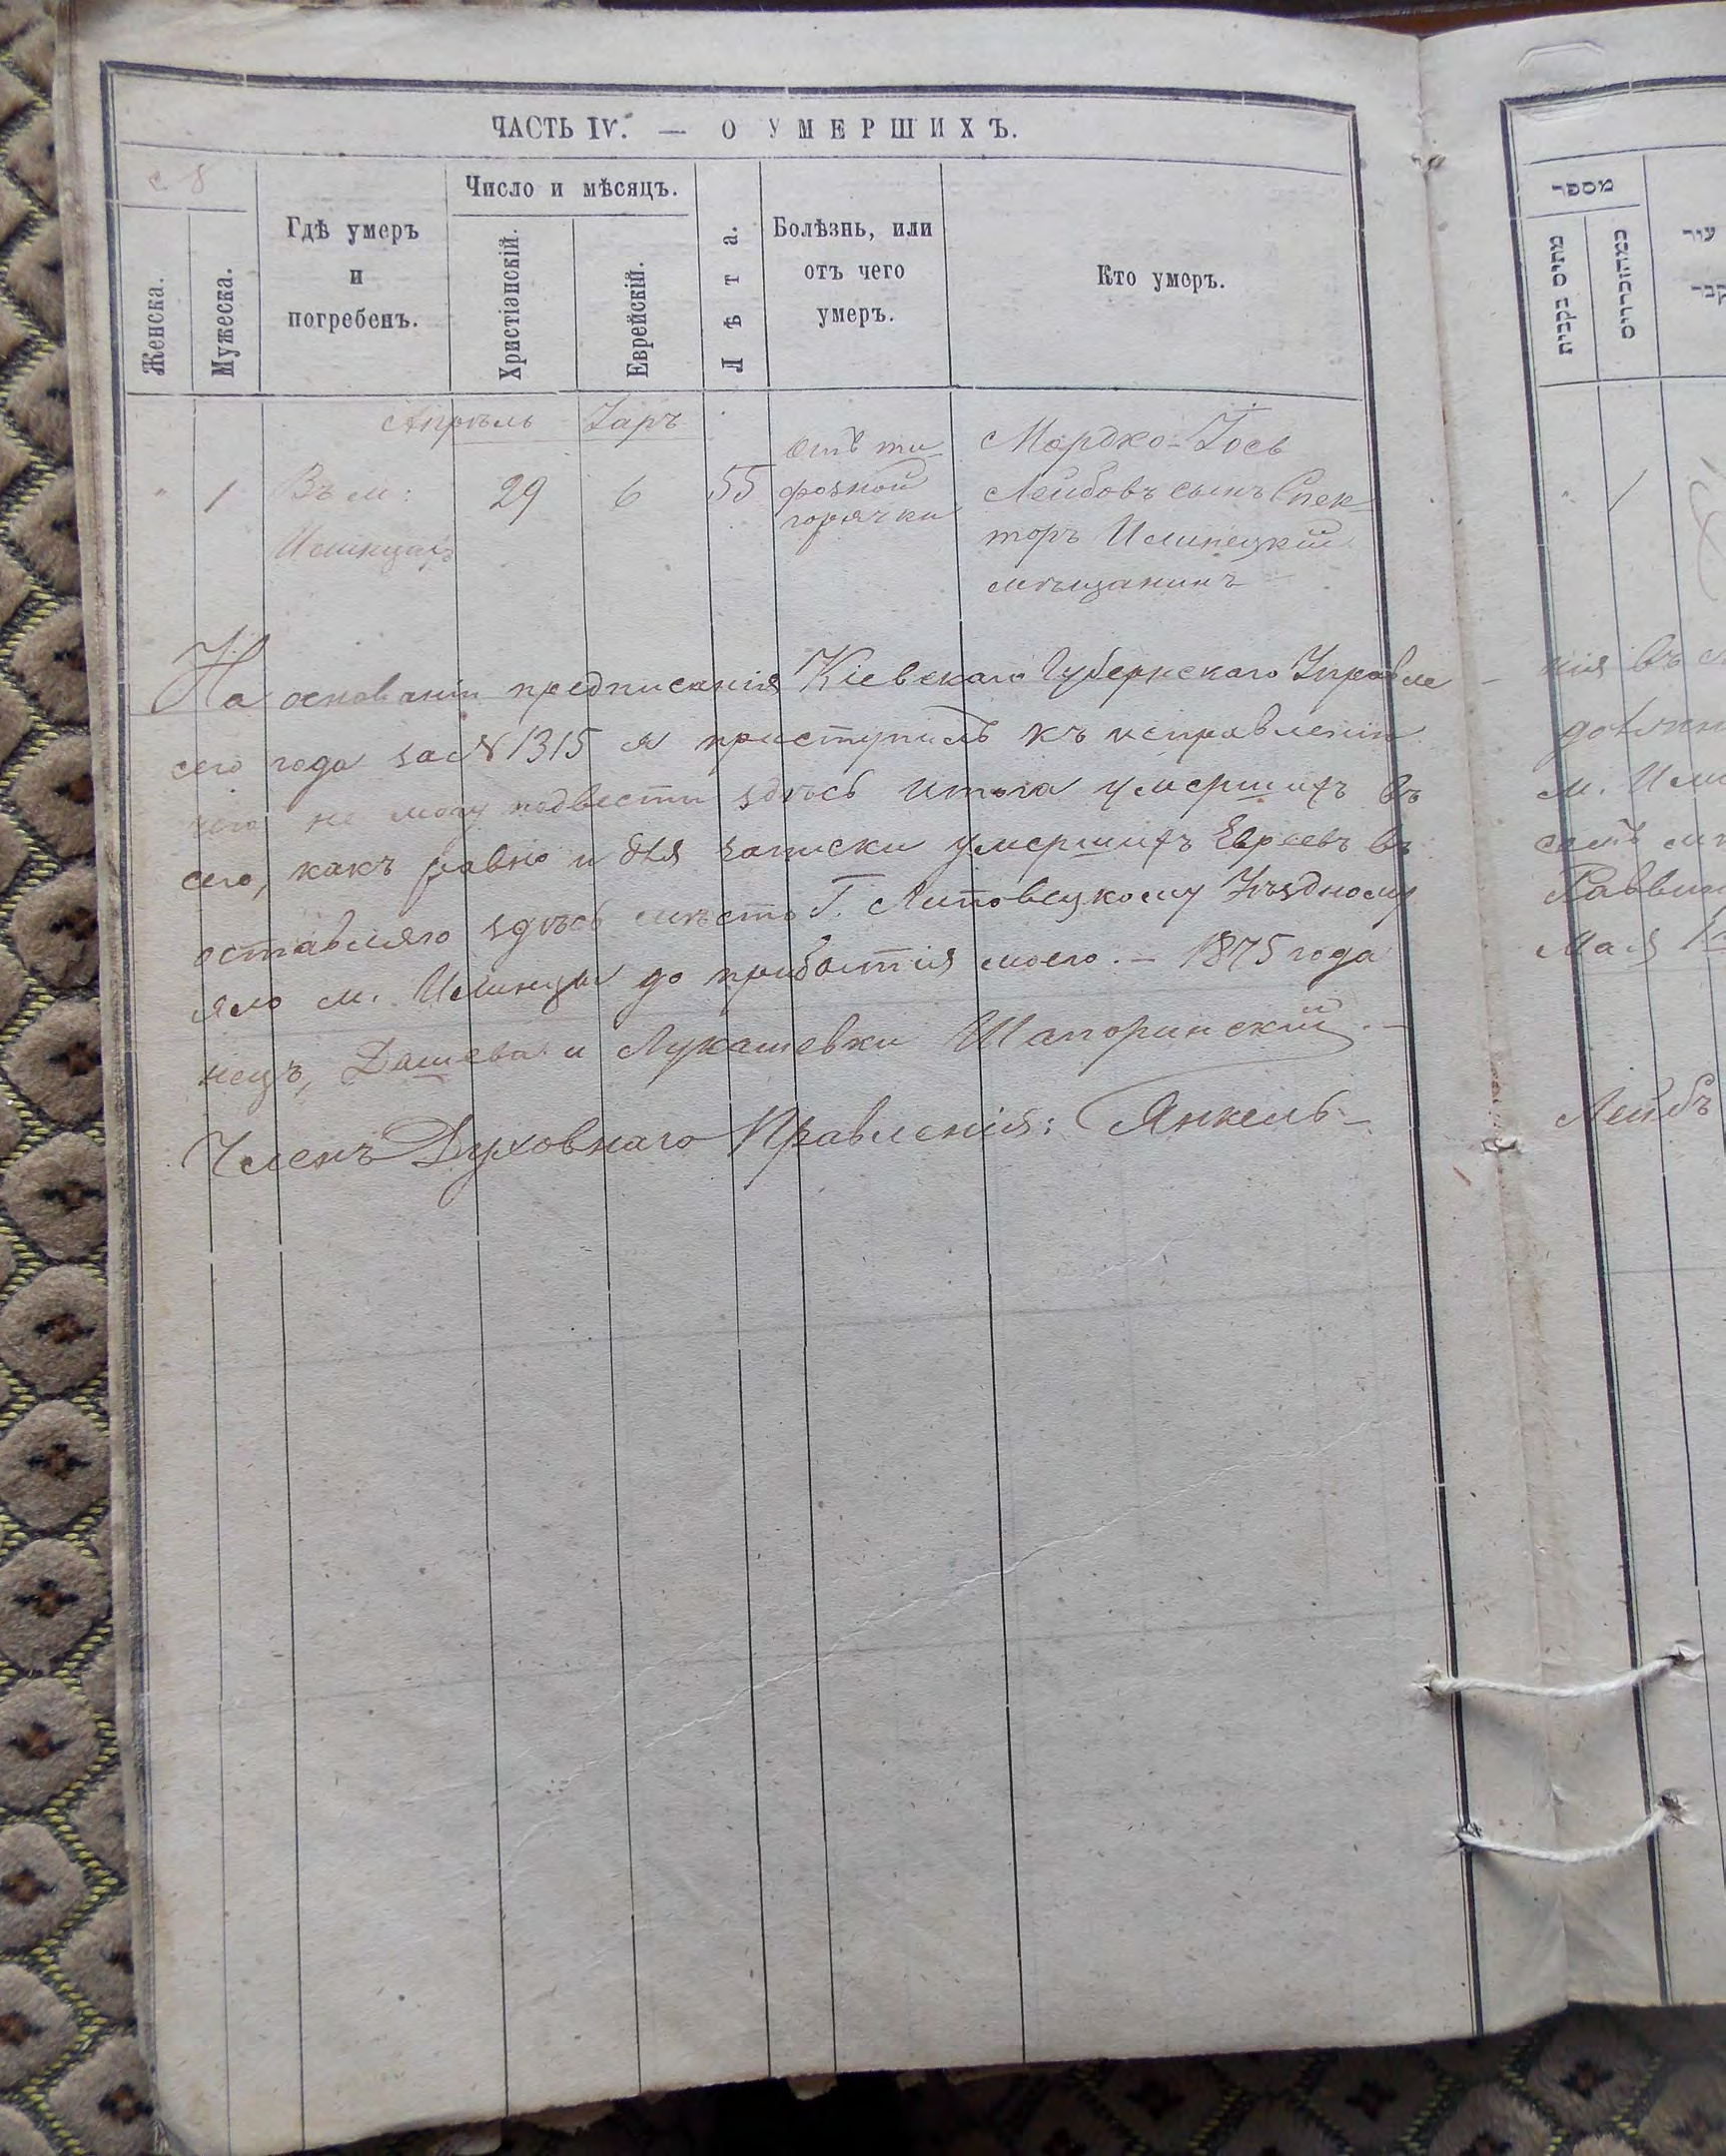 ЧАСТЬ IV. — О УМЕРШИХЪ.
Женска.
Мужеска.
Гдѣ умеръ
и
погребенъ.
Число и мѣсяцъ.
Христіанскій.
Еврейскій.
Лѣта.
Болѣзнь, или
отъ чего
умеръ.
Кто умеръ.
Апрѣль Іаръ
" 1
Въ м:
Илинцахъ
29
6
55
Отъ ти-
фозной
горячки
Мордко-Іось
Лейбовъ сынъ Спек-
торъ Илинецкій
мѣщанинъ
На основаніи предписанія Кіевскаго Губернскаго Управле-
сего года за № 1315 я приступилъ къ исправленію
чего не могу подвести здѣсь итога умершихъ въ
сего, какъ равно и для записки умершихъ Евреевъ въ
оставляю здѣсь мѣсто Г. Липовецкому Уѣздному
яло м. Илинцы до прибытія моего. — 1875 года
нецъ, Дашева и Лукашевки Шапоринскій. —
Членъ Духовнаго Правленія: Янкель-
מספר
מתים נקבות
קבר
" 1
нія въ
м. Или
семъ
Раввин
Мая
Лейбъ